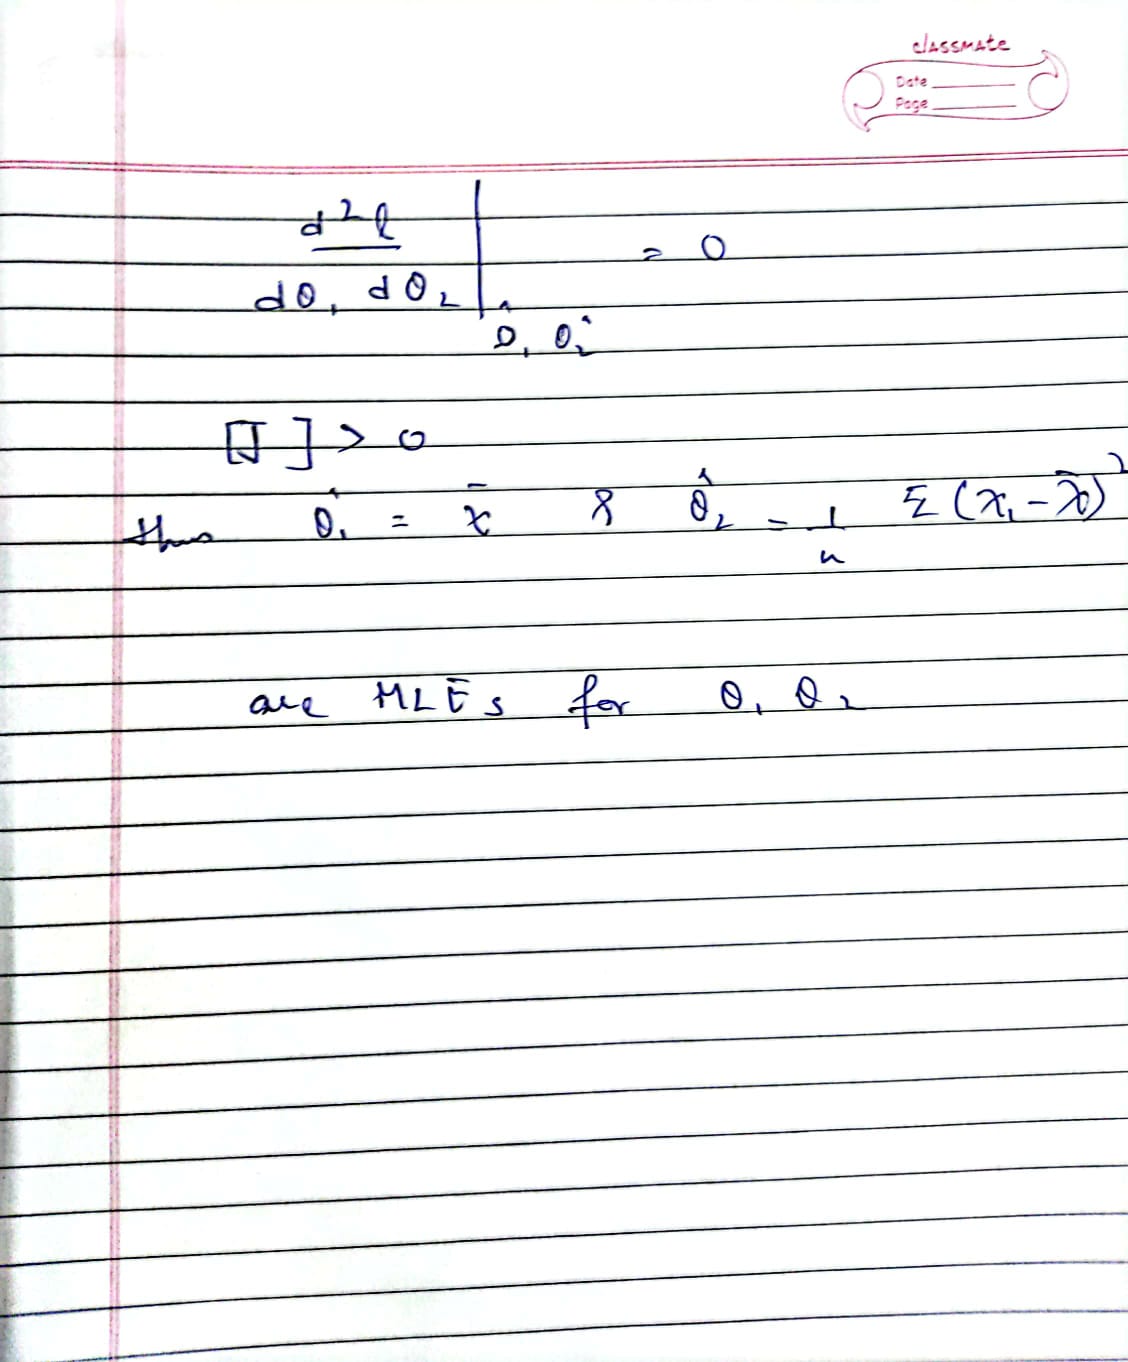 classmate
Date
Page
d²l / dθ₁ dθ₂ | θ̂₁, θ̂₂ = 0
[J] > 0
thus θ̂₁ = x̄ & θ̂₂ = 1/n Σ (x₁ - x̄)²
are MLEs for θ₁ θ₂